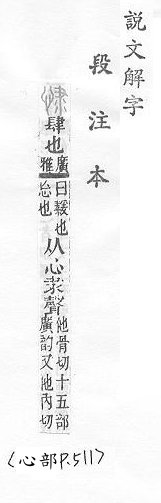 說文解字
段注本
肆也廣雅曰緩也怠也从心隶聲他骨切十五部廣韵又他內切
(心部P.511)